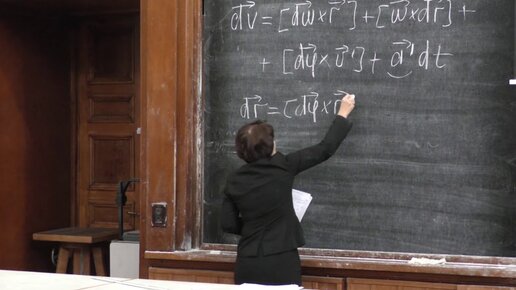 dv⃗ = [dω⃗ × r⃗'] + [ω⃗ × dr⃗'] +
+ [dφ⃗ × v⃗'] + a⃗' dt
dr⃗ = [dφ⃗ × r⃗